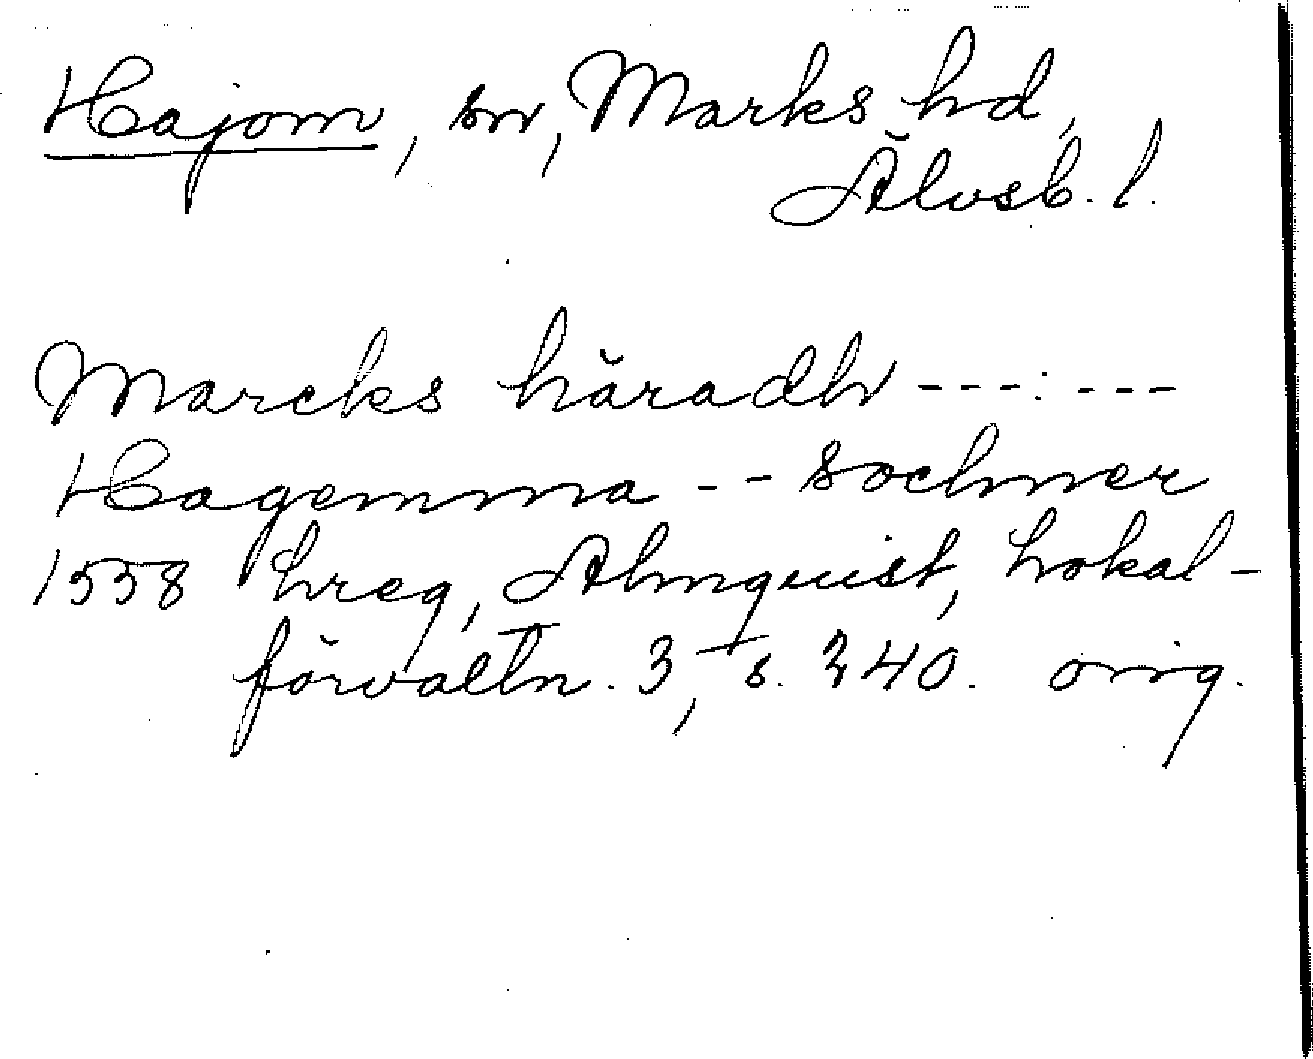 Hajom, sn, Marks hd,
Älvsb. l.
Marcks häradh ---:---
Hagemma -- sochner
1558 hreg, Almquist, Lokal-
förvaltn. 3, s. 240. orig.